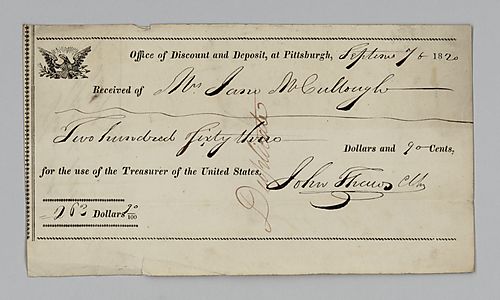 Office of Discount and Deposit, at Pittsburgh, Septem 7 1820
Received of Mrs Jane McCullough
Two hundred Sixty three Dollars and 90 Cents,
for the use of the Treasurer of the United States,
John Thaw
Duplicate
263 Dollars 90/100